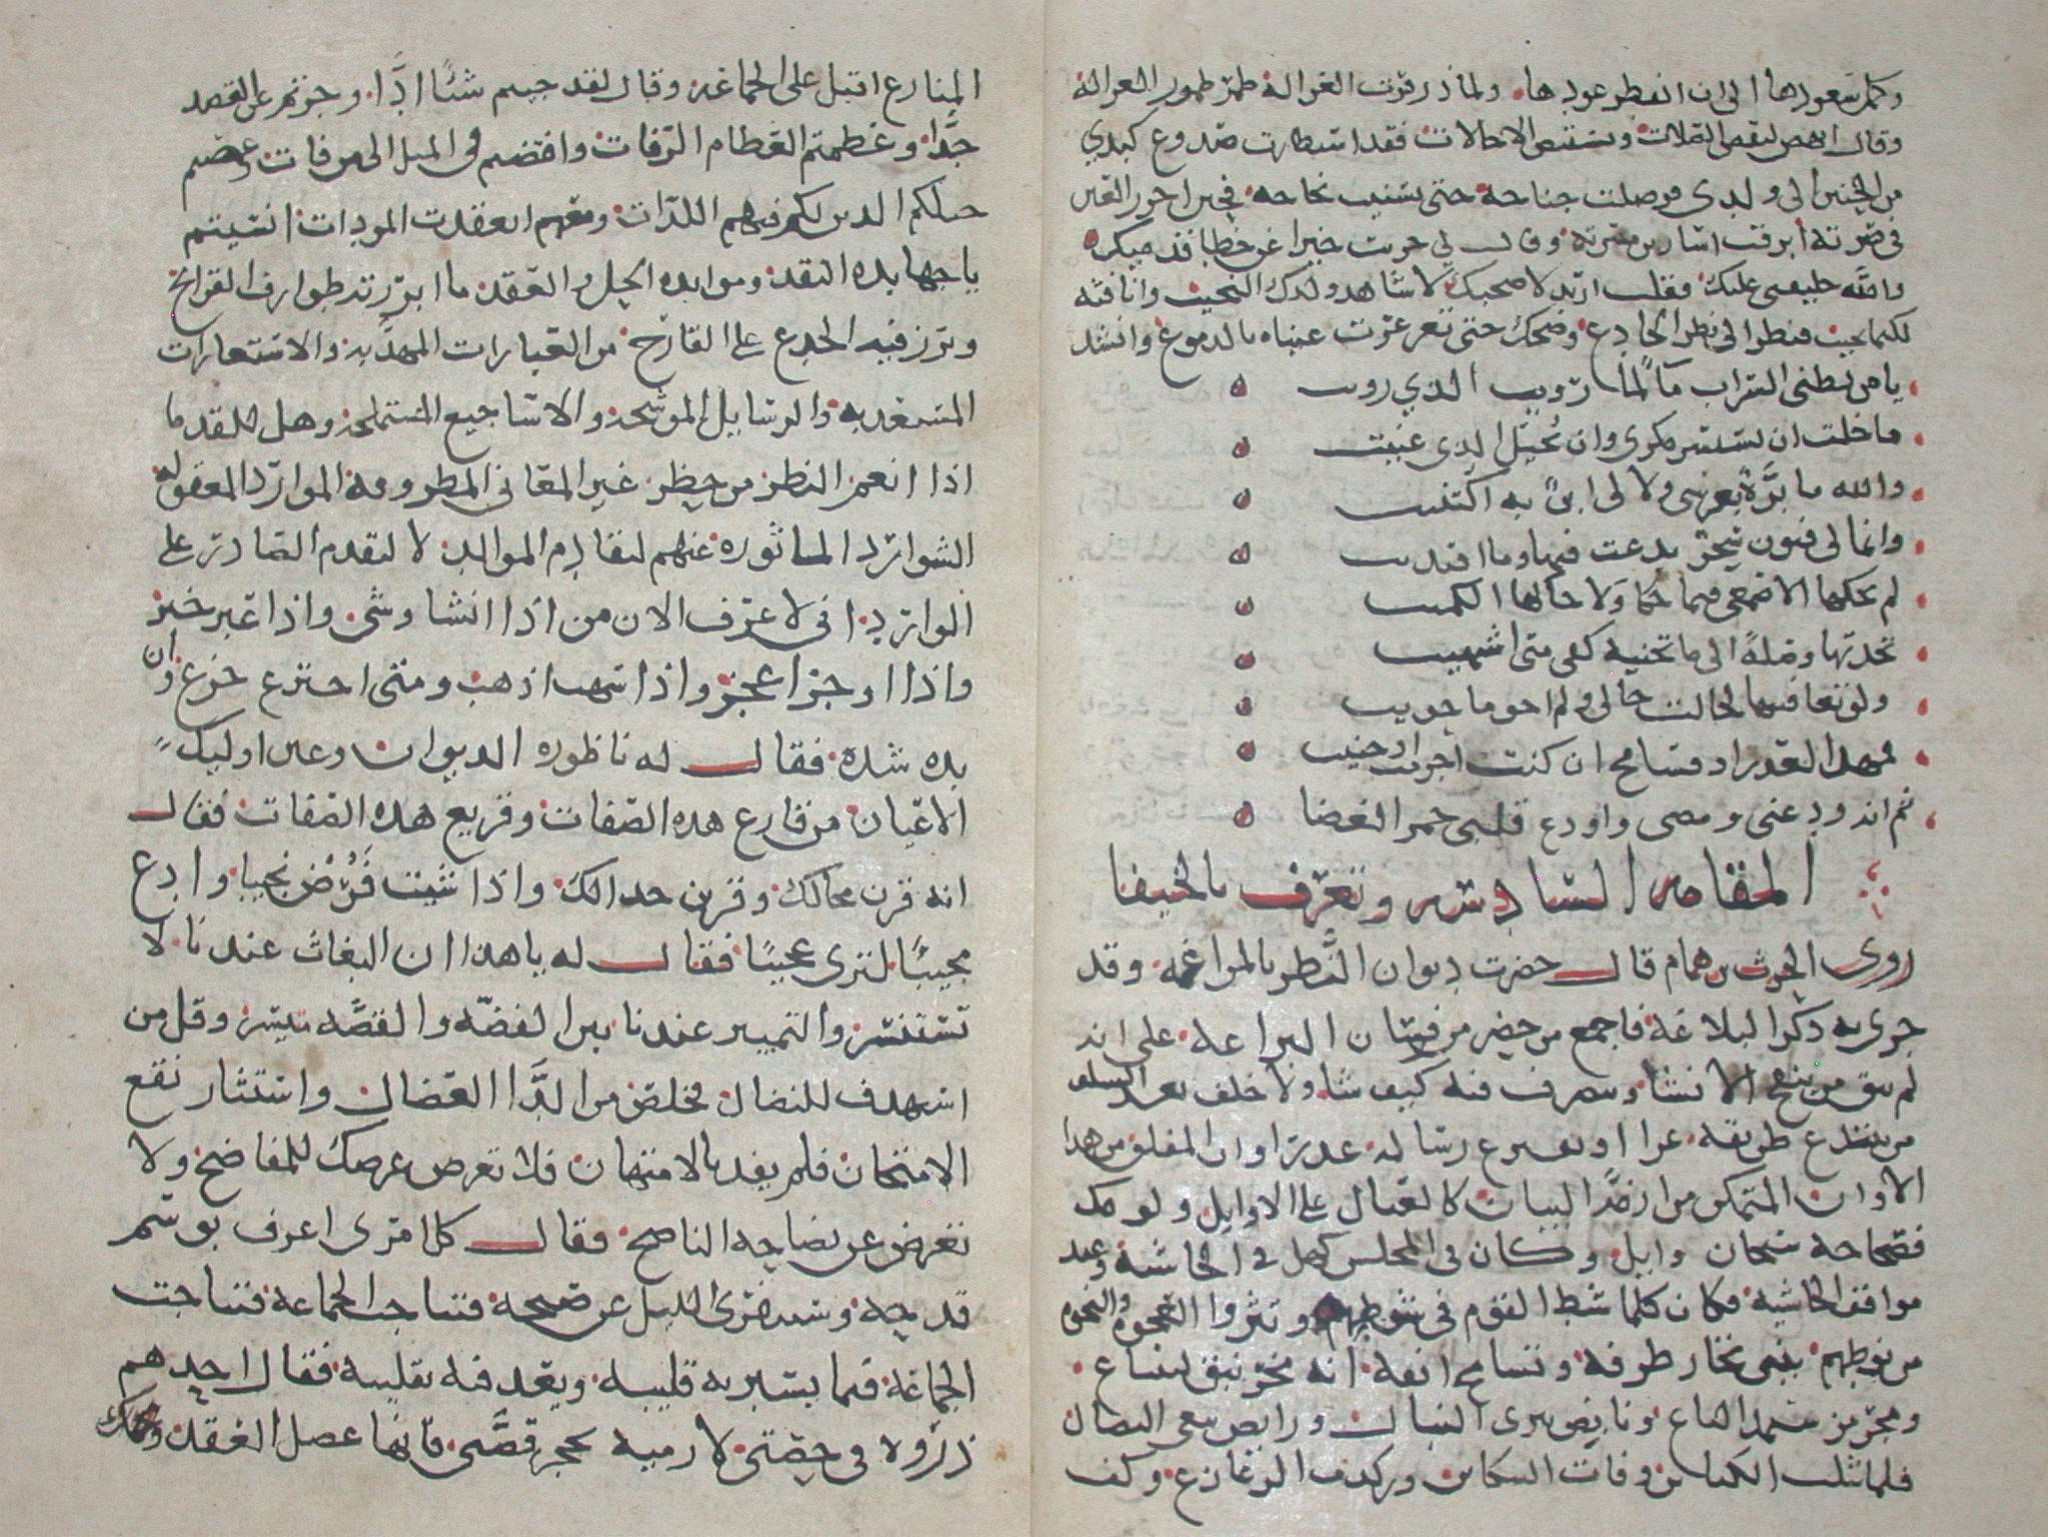 وكلم تنعوذها الى ان انفطر عودها ولما ذر قرن الغزالة طمر طمور الغزالة
وقال انهض لنقبض الصلات ونستنض الاحالات فقد استطارت صدوع كبدي
من الحنين الى ولدي فوصلت جناحه حتى سنيت نجاحه فحين احرز العين
في صرته ابرقت اسارير مسرته وقال لي جزيت خيرا عن خطا قدميك
والله خليفتي عليك فقلت اريد لاصحبك لاشاهد ولدك النجيب وانافثه
لكيما يجيب فنظر الى نظر الخادع وضحك حتى تغرغرت عيناه بالدموع وانشد
يا من يظنى السراب مآ لما رويت الذي رويت
ما خلت ان يستسر مكرى وان يخيل الذى عنيت
والله ما برة بعرسى ولا لى ابن به اكتنيت
وانما لى فنون سحر بدعت فيها وما اقتديت
لم يحكها الاصمعى فيما حكا ولا حاكها الكميت
تخذتها وصلة الى ما تجنيه كفى متى اشتهيت
ولو تعافيتها لحالت حالى ولم احو ما حويت
فمهد العذر او فسامح ان كنت اجرمت او جنيت
ثم انه ودعنى ومضى واودع قلبى جمر الغضا
المقامه السادسه وتعرف بالخيفا
روى الحرث بن همام قال حضرت ديوان النظر بالمراغه وقد
جرى به ذكر البلاغة فاجمع من حضر من فرسان البراعة على انه
لم يبق من ينقح الانشا ويتصرف فيه كيف شا ولا خلف بعد السلف
من يبتدع طريقة غرا او يفترع رسالة عذرا وان المفلق من هذا
الاوان المتمكن من ازمة البيان كالعيال على الاوايل ولو ملك
فصاحة سحبان وايل وكان فى المجلس كهل فى الحاشية وعند
مواقف الحاشية فكان كلما شط القوم فى شوطهم ونثروا العجوة والنجوة
من نوطهم ينبى تخازر طرفه وتشامخ انفه انه مخرنبق لينباع
ومجرمز سيمد الباع ونابض يبرى النبال ورابض يبغى النضال
فلما نثلت الكنائن وفات السكائن وركدت الزعازع وكف
المنازع اقبل على الجماعة وقال لقد جيتم شئا ادا وجرتم عن القصد
جدا وعظمتم العظام الرفات وافتضتم فى الميل الى من فات وغمصتم
جيلكم الذين لكم فيهم اللدات ومعهم انعقدت المودات انسيتم
يا جهابذه النقد وموابذه الحل والعقد ما ابرزته طوارف القرائح
وبرز فيه الجذع على القارح من العبارات المهذبه والاستعارات
المستعذبه والرسايل الموشحة والاساجيع المستملحة وهل للقدما
اذا انعم النظر من حضر غير المعانى المطروقة الموارد المعقوله
الشوارد الماثوره عنهم لتقادم الموالد لا لتقدم الصادر على
الوارد انى لاعرف الان من اذا انشا وشى واذا عبر حبر
واذا اوجز اعجز واذا اسهب اذهب ومتى اخترع خرع وان
بده شده فقال له ناظوره الديوان وعين اوليك
الاعيان من قارع هذه الصفات وقريع هذه الصفات فقال
انه قرن مجالك وقرين جدالك واذا شيت فرض نجيبا وادع
مجيبا لترى عجيبا فقال له يا هذا ان البغاث عندنا لا
تستنسر والتمييز عندنا بين الفضه والقضه متيسر وقل من
استهدف للنضال فخلص من الدا العضال واستثار نقع
الامتحان فلم يقذ بالامتهان فلا تعرض عرضك للمفاضح ولا
تعرض عن نصاحه الناصح فقال كل امرى اعرف بوسم
قدحه وسيتفرى الليل عن صبحه فتناجت الجماعة فتناجت
الجماعة فيما يسبر به قليبه ويعمد فيه تقليبه فقال احدهم
ذروه فى حصتى لارميه بحجر قصتى فانها عضل العقد ومحك